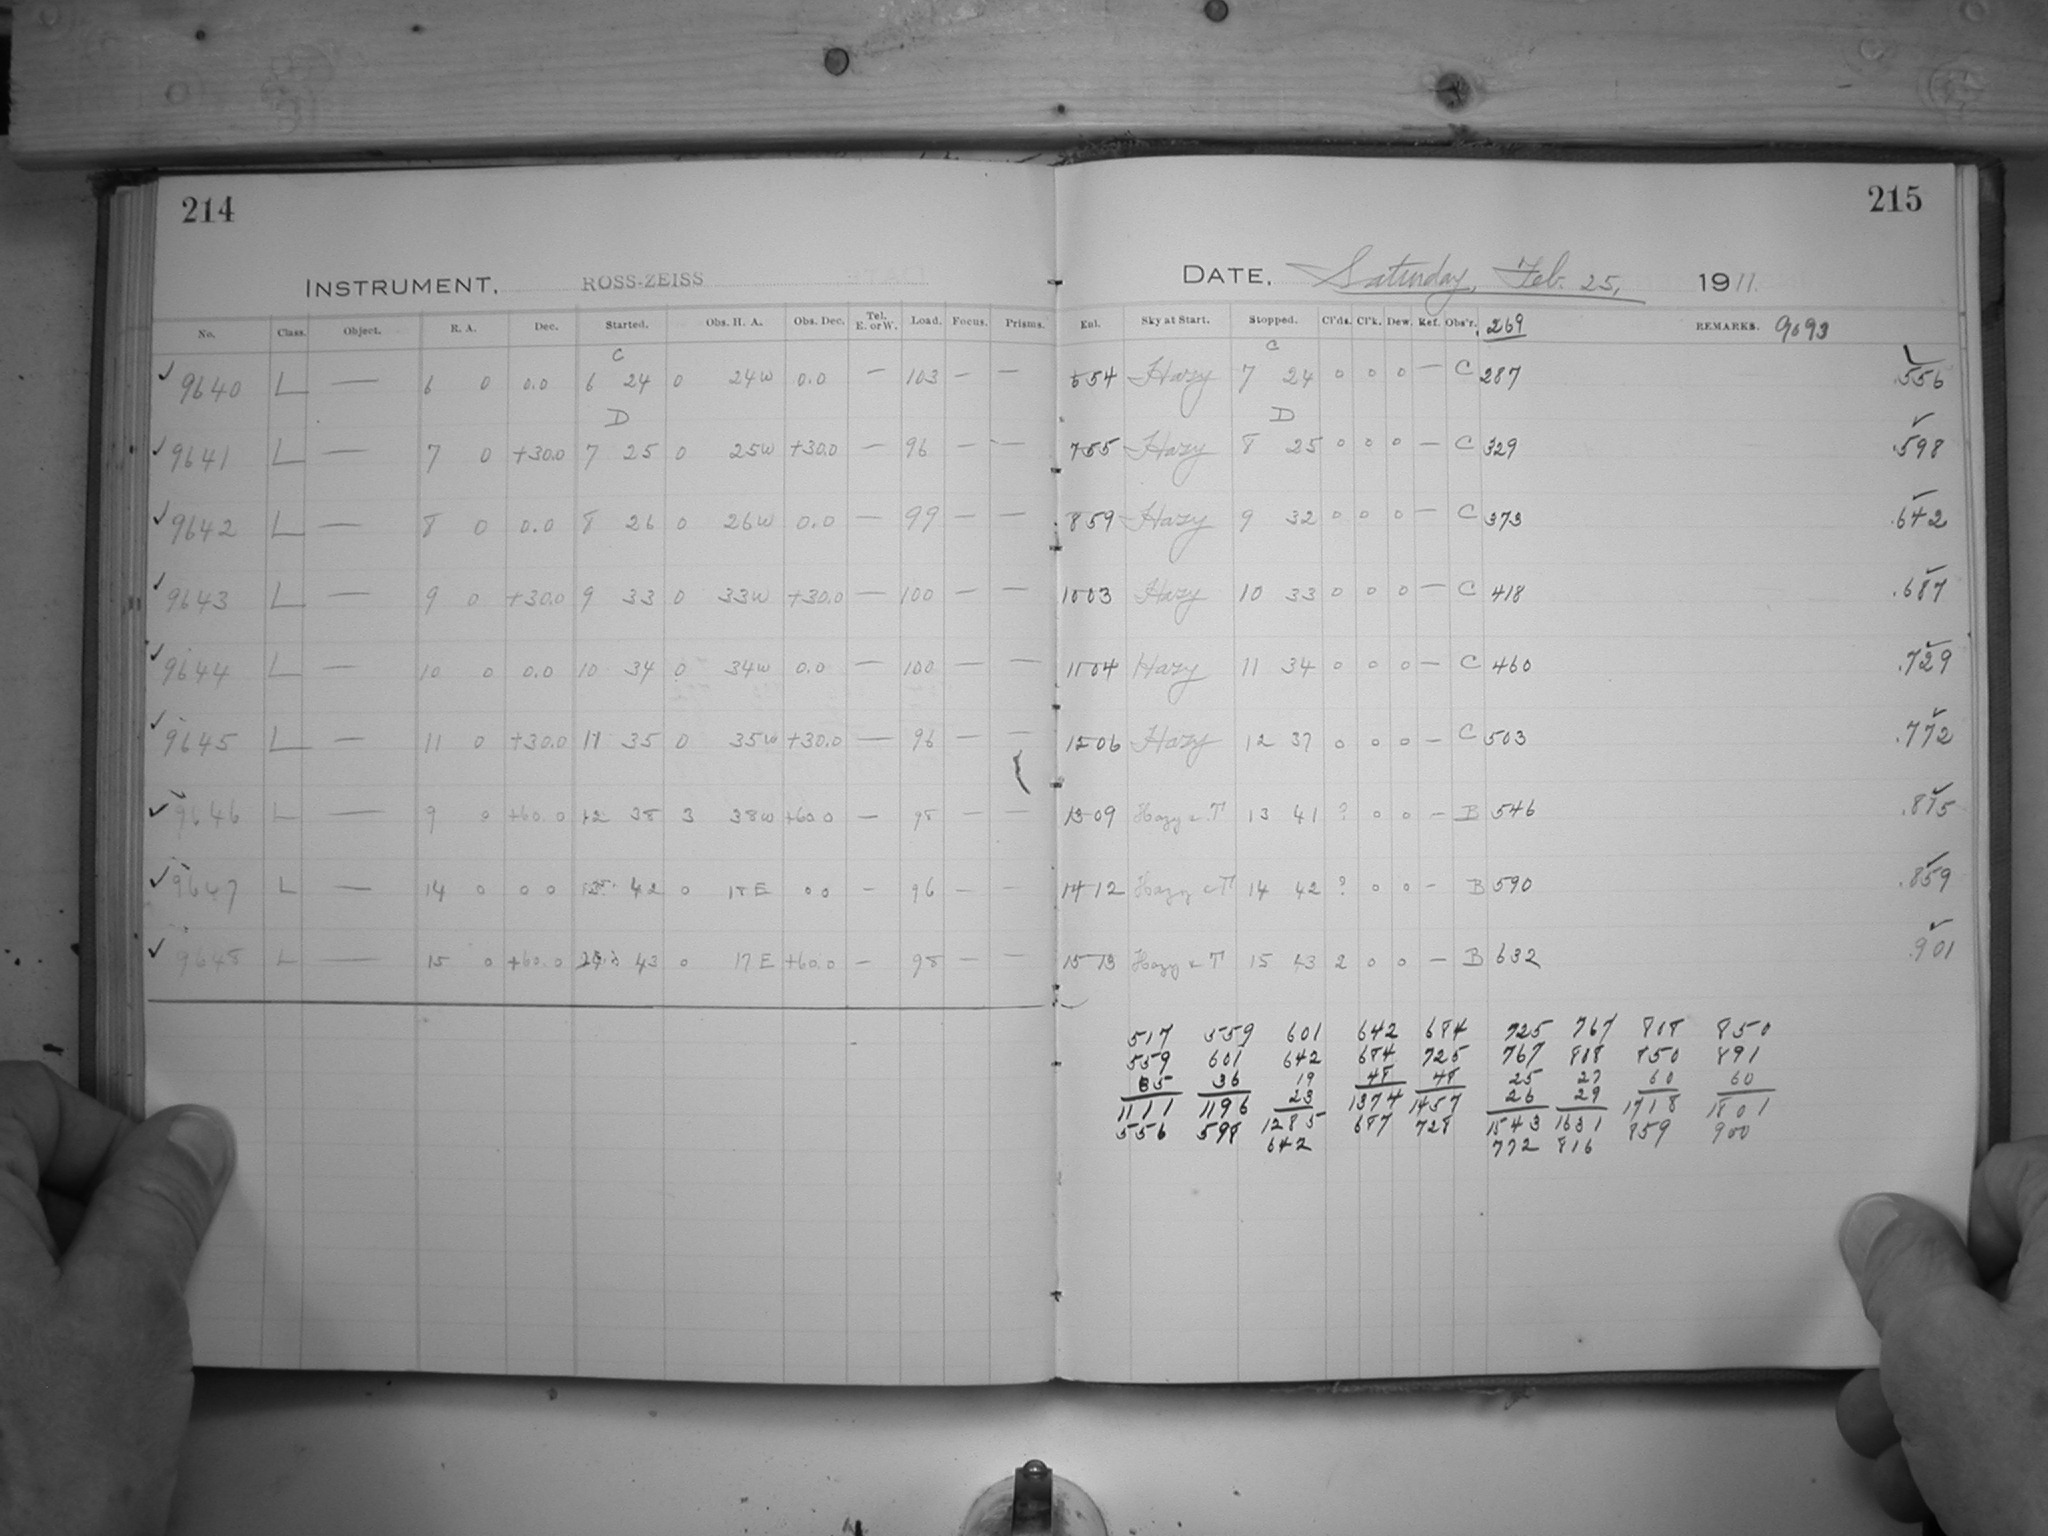 214
215
INSTRUMENT, ROSS-ZEISS
DATE, Saturday, Feb. 25, 1911.
No. Class. Object. R. A. Dec. Started. Obs. H. A. Obs. Dec. Tel. E. or W. Load. Focus. Prisms. Enl. Sky at Start. Stopped. Cl'ds. Cl'k. Dew. Ref. Obs'r. 269 REMARKS. 9693
C C
✓ 9640 L — 6 0 0.0 6 24 0 24W 0.0 — 103 — — 654 Hazy 7 24 0 0 0 — C 287 .556
D D
✓ 9641 L — 7 0 +30.0 7 25 0 25W +30.0 — 96 — — 755 Hazy 8 25 0 0 0 — C 329 .598
✓ 9642 L — 8 0 0.0 8 26 0 26W 0.0 — 99 — — 859 Hazy 9 32 0 0 0 — C 373 .642
✓ 9643 L — 9 0 +30.0 9 33 0 33W +30.0 — 100 — — 1003 Hazy 10 33 0 0 0 — C 418 .687
✓ 9644 L — 10 0 0.0 10 34 0 34W 0.0 — 100 — — 1104 Hazy 11 34 0 0 0 — C 460 .729
✓ 9645 L — 11 0 +30.0 11 35 0 35W +30.0 — 96 — — 1206 Hazy 12 37 0 0 0 — C 503 .772
✓ 9646 L — 9 0 +60.0 12 38 3 38W +60.0 — 98 — — 1309 Hazy & T 13 41 ? 0 0 — B 546 .815
✓ 9647 L — 14 0 0 0 42 0 18E 0 0 — 96 — — 1412 Hazy & T 14 42 ? 0 0 — B 590 .859
✓ 9648 L — 15 0 +60.0 43 0 17E +60.0 — 98 — — 1513 Hazy & T 15 43 2 0 0 — B 632 .901
517 559 601 642 684 725 767 808 850
559 601 642 684 725 767 808 850 891
35 36 19 48 48 25 27 60 60
1111 1196 23 1374 1457 26 29 1718 1801
556 598 1285 687 728 1543 1631 859 900
642 772 816